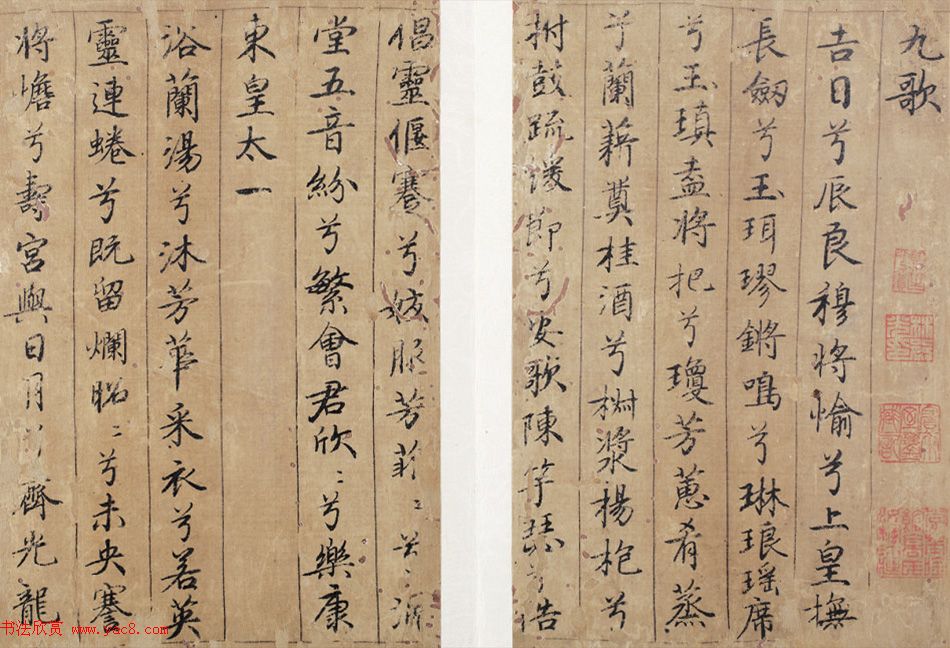 九歌
吉日兮辰良穆將愉兮上皇撫
長劔兮玉珥璆鏘鳴兮琳琅瑶席
兮玉瑱盍將把兮瓊芳蕙肴蒸
兮蘭藉奠桂酒兮椒漿楊枹兮
拊鼓疏緩節兮安歌陳竽瑟兮浩
倡靈偃蹇兮姣服芳菲〻兮滿
堂五音紛兮繁會君欣〻兮樂康
東皇太一
浴蘭湯兮沐芳華采衣兮若英
靈連蜷兮既留爛昭〻兮未央謇
將憺兮壽宮與日月兮齊光龍
书法欣赏 www.yac8.com